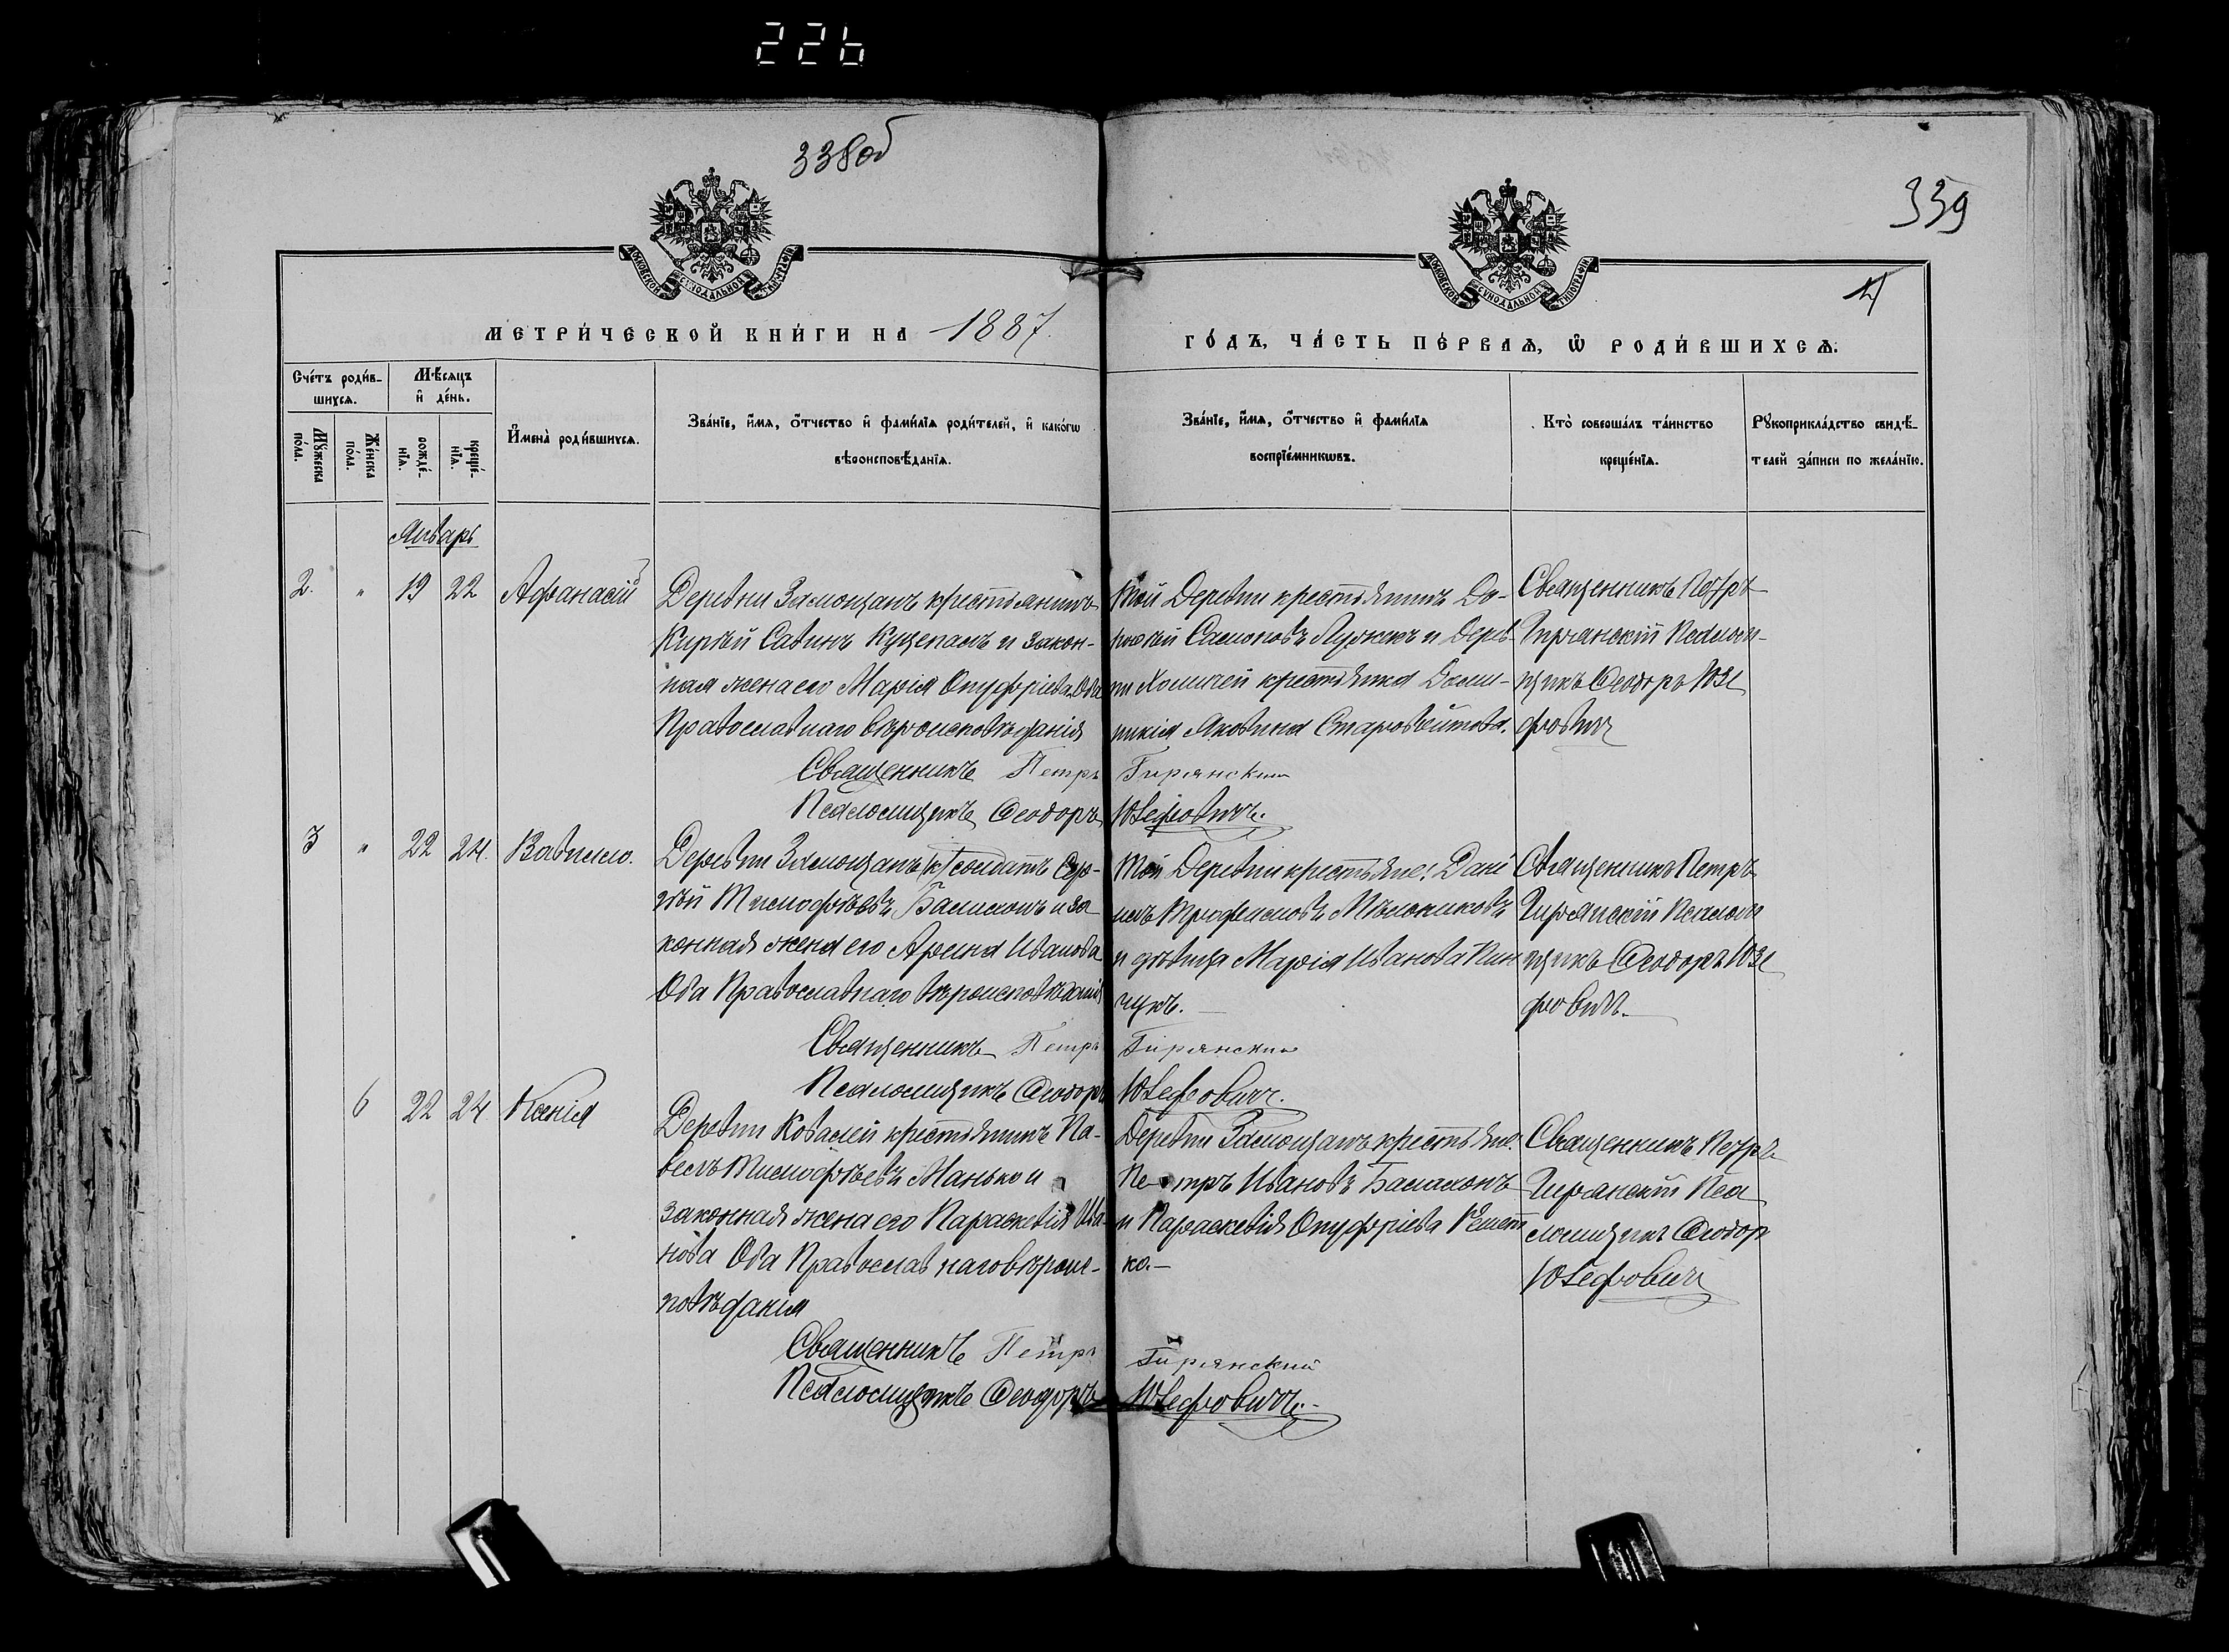 226
338об
339
4
МОСКОВСКОЙ СУНОДАЛЬНОЙ ТИПОГРАФІИ
МОСКОВСКОЙ СУНОДАЛЬНОЙ ТИПОГРАФІИ
МЕТРИ́ЧЕСКОЙ КНИ́ГИ НА 1887
ГО́ДЪ, ЧА́СТЬ ПЕ́РВАѦ, Ѡ҆ РОДИ́ВШИХСѦ:
Сче́тъ роди́в-
шихсѧ.
Мѣ́сѧцъ
и҆ де́нь.
Мꙋ́жеска
по́ла.
Же́нска
по́ла.
рожде́-
нїѧ.
креще́-
нїѧ.
И҆мена̀ роди́вшихсѧ.
Зва́нїе, и҆́мѧ, ѻ҆́тчество и҆ фами́лїѧ роди́телей, и҆ како́гѡ
вѣроисповѣ́данїѧ.
Зва́нїе, и҆́мѧ, ѻ҆́тчество и҆ фами́лїѧ
воспрїе́мникѡвъ.
Кто̀ соверша́лъ та́инство
креще́нїѧ.
Рꙋкоприкла́дство свидѣ́-
телей за́писи по жела́нїю.
Январь
2. " 19 22 Афанасій
Деревни Замощанъ крестьянинъ
Кирѣй Савинъ Куцепамъ и закон-
ная жена его Марія Онуфріева Оба
Православнаго вѣроисповѣданія
Священникъ Петръ Гирянскій
Псаломщикъ Ѳеодоръ Юзефовичъ.
Той Деревни крестьянинъ До-
рофей Самоновъ Лужикъ и Дерев-
ни Хомичей крестьянка Доми-
никія Яковина Старовойтова.
Священникъ Петръ
Гирянскій Псалом-
щикъ Ѳеодоръ Юзе
фовичъ
3 " 22 24. Вавила.
Деревни Замощанъ (к) солдатъ Сер-
гѣй Тимофѣевъ Балахонъ и за
конная жена его Арина Иванова
Оба Православнаго вѣроисповѣданія
Священникъ Петръ Гирянскій
Псаломщикъ Ѳеодоръ Юзефовичъ.
Той Деревни крестьяне: Дані
илъ Трофимовъ Мѣльниковъ
и дѣвица Марія Иванова Пин
чукъ.
Священникъ Петръ
Гирянскій Псалом
щикъ Ѳеодоръ Юзе
фовичъ.
6 22 24 Ксенія
Деревни Ковалей крестьянинъ Па-
велъ Тимофѣевъ Манько и
законная жена его Параскевія Ива-
нова Оба Православнаго вѣроис-
повѣданія
Священникъ Петръ Гирянскій
Псаломщикъ Ѳеодоръ Юзефовичъ.
Деревни Замощанъ крестьяне.
Петръ Ивановъ Балахонъ
и Параскевія Онуфріева Решет
ко.
Священникъ Петръ
Гирянскій Пса
ломщикъ Ѳеодоръ
Юзефовичъ